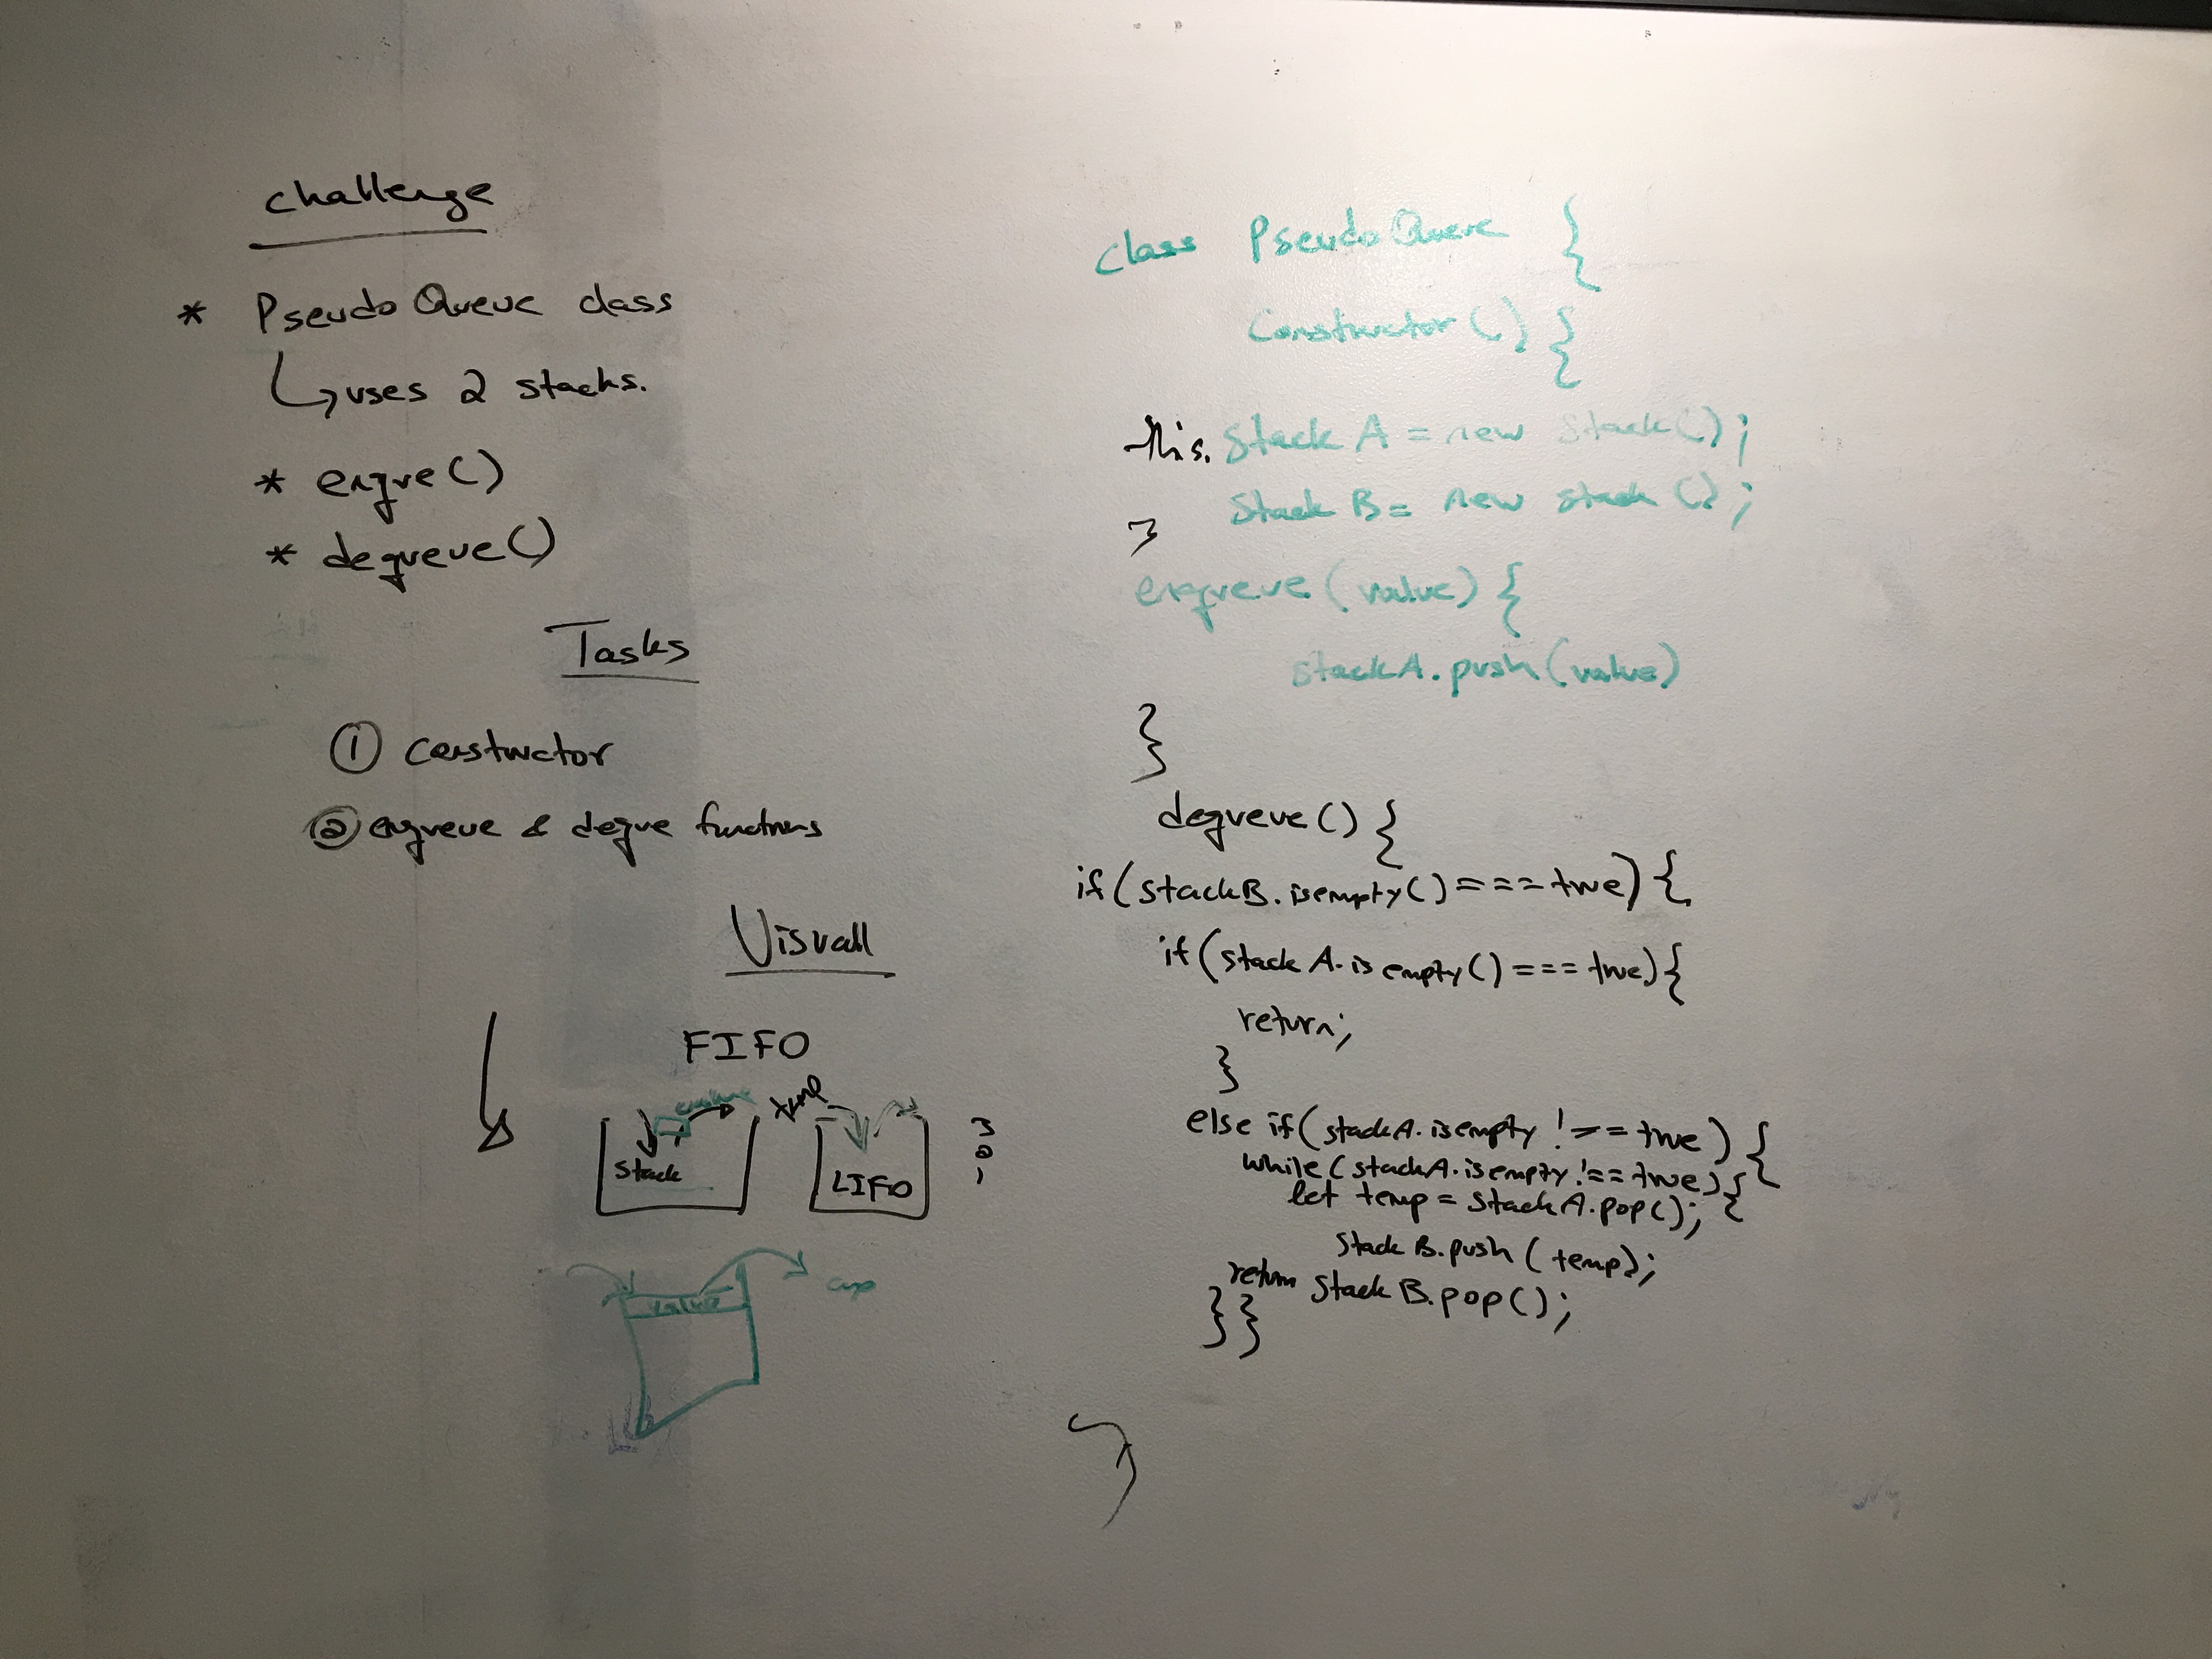 challenge
* Pseudo Queue class
uses 2 stacks.
* enque()
* dequeue()
Tasks
① Constructor
② enqueue & deque functions
Visuall
FIFO
temp
stack
LIFO
3
2
1
value
class Pseudo Queue {
Constructor () {
this. Stack A = new Stack();
Stack B = new stack ();
}
enqueue (value) {
stackA.push(value)
}
dequeue() {
if(stackB.isempty() === true) {
if(stack A.is empty() === true) {
return;
}
else if(stackA.isempty !== true) {
while(stackA.isempty !== true) {
let temp = stackA.pop();
Stack B.push (temp);
return Stack B.pop();
}}
}